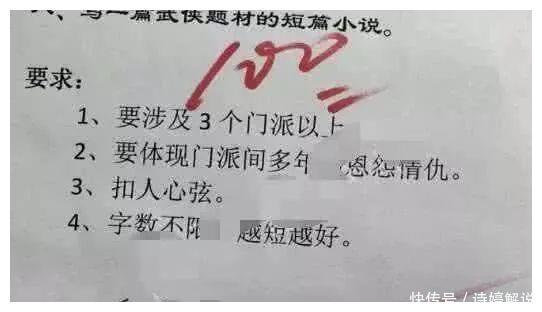 写一篇武侠题材的短篇小说。
100
要求:
1、要涉及3个门派以上
2、要体现门派间多年恩怨情仇。
3、扣人心弦。
4、字数不限 越短越好。
快传号/诗婷解说